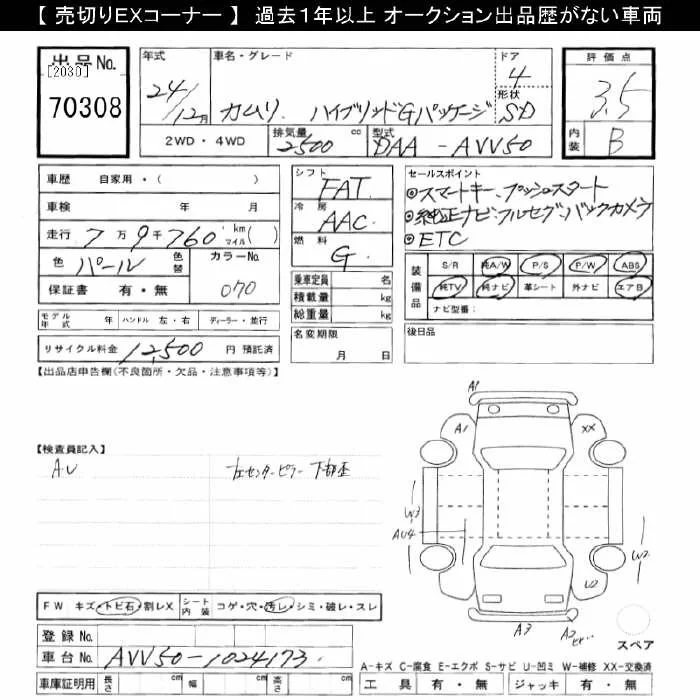 【 売切りEXコーナー 】 過去１年以上 オークション出品歴がない車両
出品No.
[2030]
70308
年式
24/12月
車名・グレード
カムリ ハイブリッドGパッケージ
ドア
4
形状
SD
2WD・4WD
排気量 2500 cc
型式 DAA-AVV50
評価点
3.5
内装 B
車歴 自家用・( )
車検 年 月
走行 7万9千760 km マイル( )
色 パール 色替
カラーNo 070
保証書 有・無
シフト FAT
冷房 AAC
燃料 G
乗車定員 名
積載量 kg
総重量 kg
名変期限
月 日
セールスポイント
◎スマートキー、プッシュスタート
◎純正ナビ・フルセグ、バックカメラ
◎ETC
装備品
S/R 純A/W P/S P/W ABS
純TV 純ナビ 革シート 外ナビ エアB
ナビ型番:
後日品
モデル年式 年 ハンドル 左・右 ディーラー・並行
リサイクル料金 12,500 円 預託済
【出品店申告欄(不良箇所・欠品・注意事項等)】
【検査員記入】
A.U 左センターピラー下部歪
A1
A1
XX
W3
AU4
W2
U2
A3
A2
スペア
FW キズ・トビ石・割レX
シート内装 コゲ・穴・汚レ・シミ・破レ・スレ
登録No.
車台No. AVV50-1024173
車庫証明用 長さ cm 幅 cm 高さ cm
A-キズ C-腐食 E-エクボ S-サビ U-凹ミ W-補修 XX-交換済
工具 有・無 ジャッキ 有・無